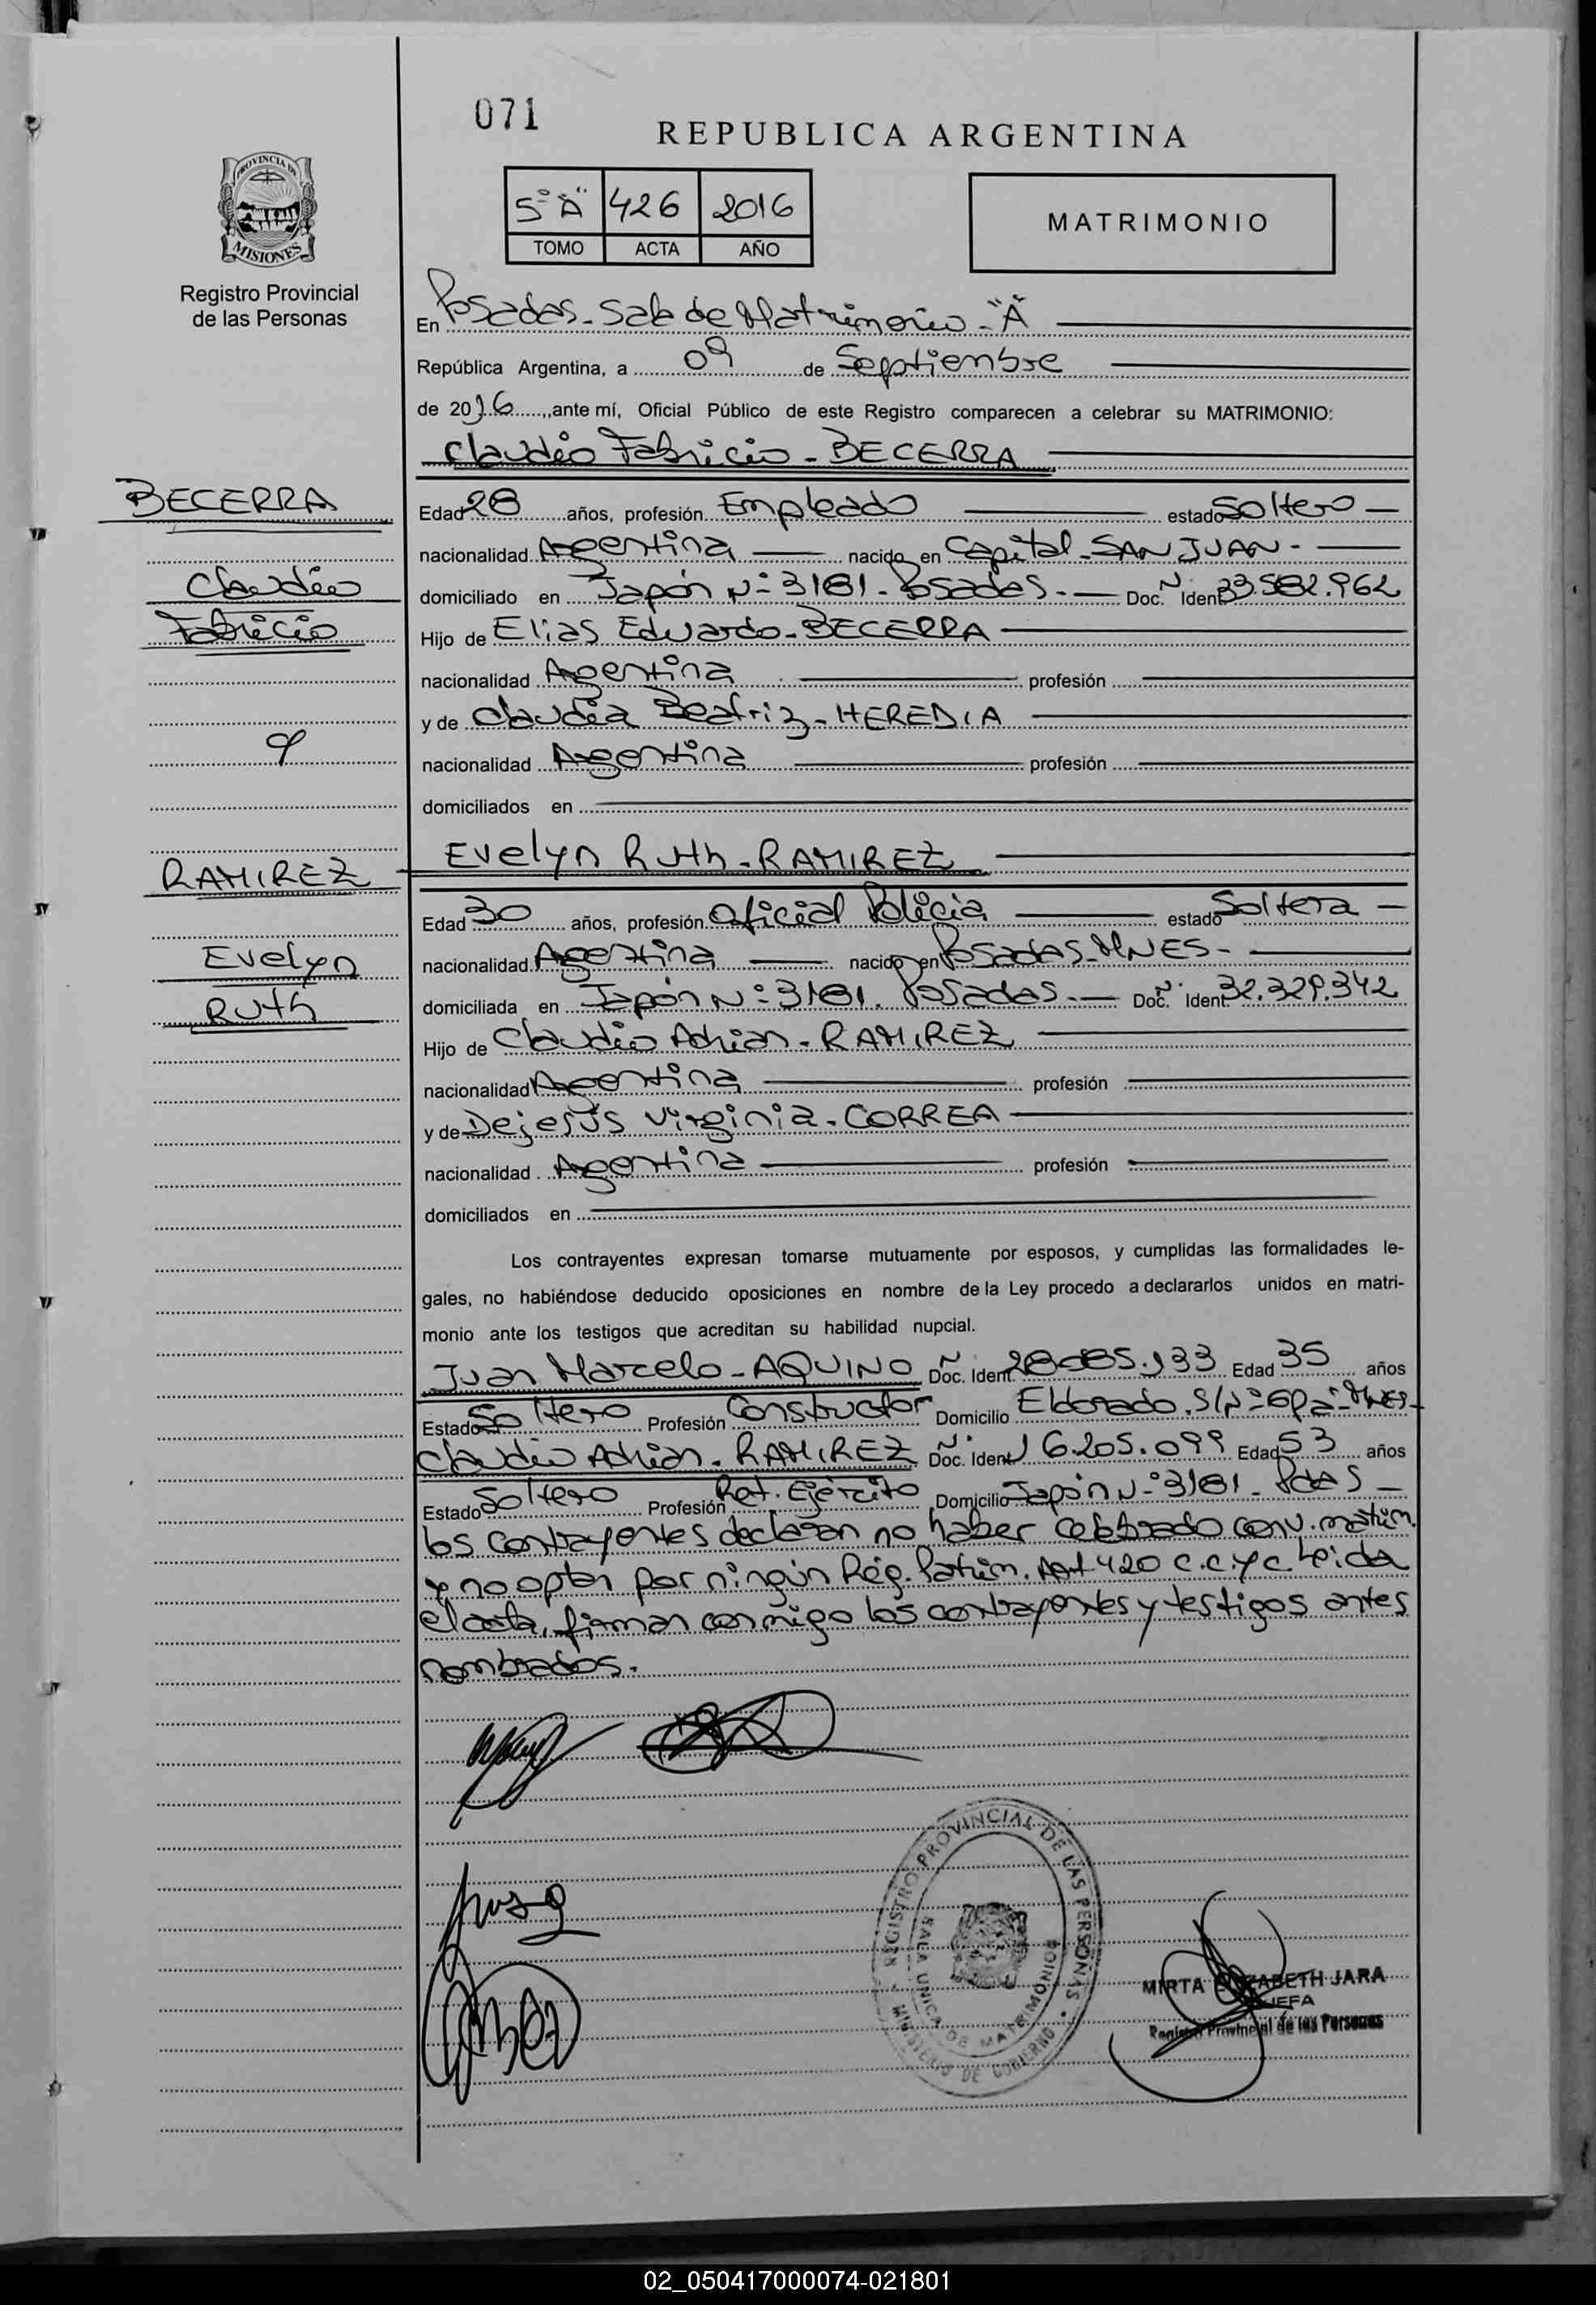 071
REPUBLICA ARGENTINA
PROVINCIA DE
MISIONES
Registro Provincial
de las Personas
5° "A" 426 2016
TOMO ACTA AÑO
MATRIMONIO
En Posadas - Sala de Matrimonio - "A"
República Argentina, a 09 de Septiembre
de 2016, ante mí, Oficial Público de este Registro comparecen a celebrar su MATRIMONIO:
Claudio Fabricio - BECERRA
BECERRA
Claudio
Fabricio
Edad 28 años, profesión Empleado estado Soltero
nacionalidad Argentina nacido en Capital - SAN JUAN -
domiciliado en Japón N° 3181 - Posadas - Doc. Ident 33.582.962
Hijo de Elias Eduardo - BECERRA
nacionalidad Argentina profesión
y de Claudia Beatriz - HEREDIA
nacionalidad Argentina profesión
domiciliados en
Evelyn Ruth - RAMIREZ
RAMIREZ
Evelyn
Ruth
Edad 30 años, profesión Oficial Policia estado Soltera
nacionalidad Argentina nacido en Posadas - MNES -
domiciliada en Japón N° 3181 - Posadas - Doc. Ident 32.329.342
Hijo de Claudio Adrian - RAMIREZ
nacionalidad Argentina profesión
y de Dejesús Virginia - CORREA
nacionalidad Argentina profesión
domiciliados en
Los contrayentes expresan tomarse mutuamente por esposos, y cumplidas las formalidades le-
gales, no habiéndose deducido oposiciones en nombre de la Ley procedo a declararlos unidos en matri-
monio ante los testigos que acreditan su habilidad nupcial.
Juan Marcelo - AQUINO Doc. Ident Edad 35 años
Estado Soltero Profesión Constructor Domicilio Eldorado S/N°
Claudio Adrian - RAMIREZ Doc. Ident 16.205.099 Edad 53 años
Estado Soltero Profesión Ret. Ejército Domicilio Japón N° 3181 - Pdas -
los contrayentes declaran no haber celebrado conv. matrim.
y no optan por ningún Rég. Patrim. Art 420 c.c.y c. Leida
el acta, firman conmigo los contrayentes y testigos antes
nombrados.
REGISTRO PROVINCIAL DE LAS PERSONAS
SALA UNICA DE MATRIMONIOS
MINISTERIO DE GOBIERNO
MIRTA ELIZABETH JARA
JEFA
Registro Provincial de las Personas
02_050417000074-021801